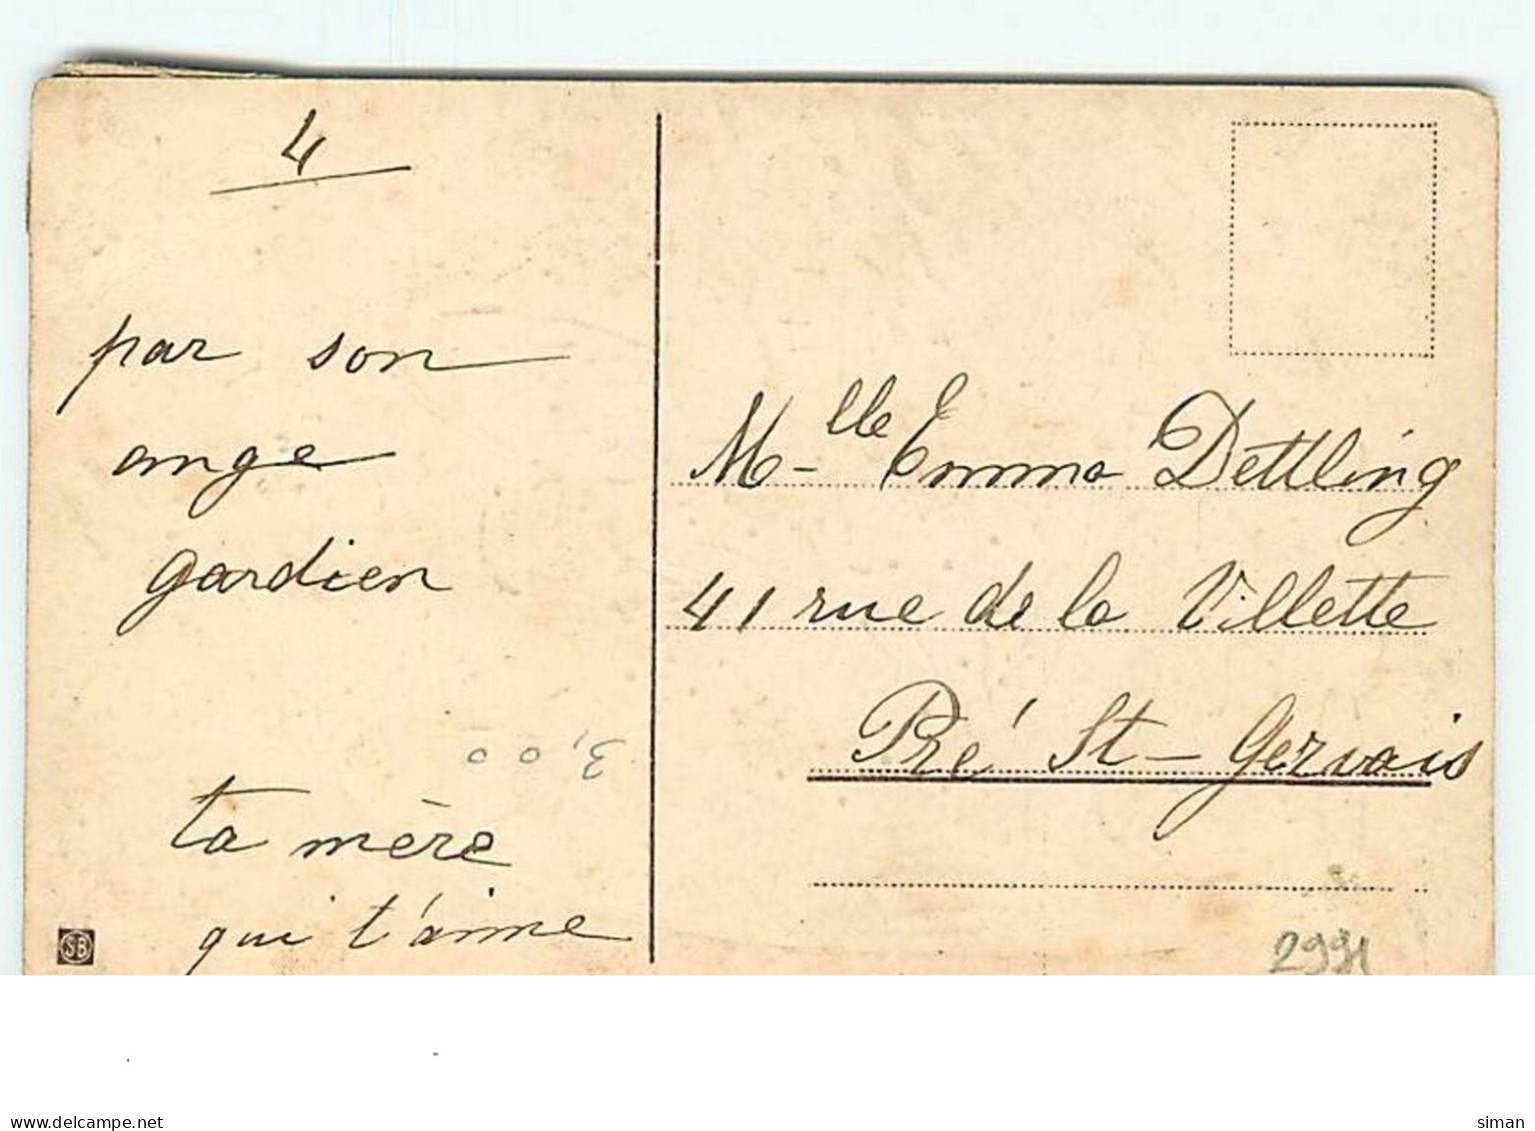 4
par son
ange
gardien
3,00
ta mère
qui t'aime
SB
Mlle Emma Dettling
41 rue de la Villette
Pré St-Gervais
2991
www.delcampe.net
siman